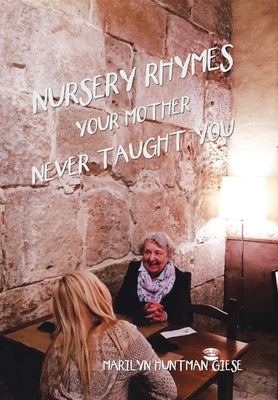 NURSERY RHYMES
YOUR MOTHER
NEVER TAUGHT YOU
MARILYN HUNTMAN GIESE